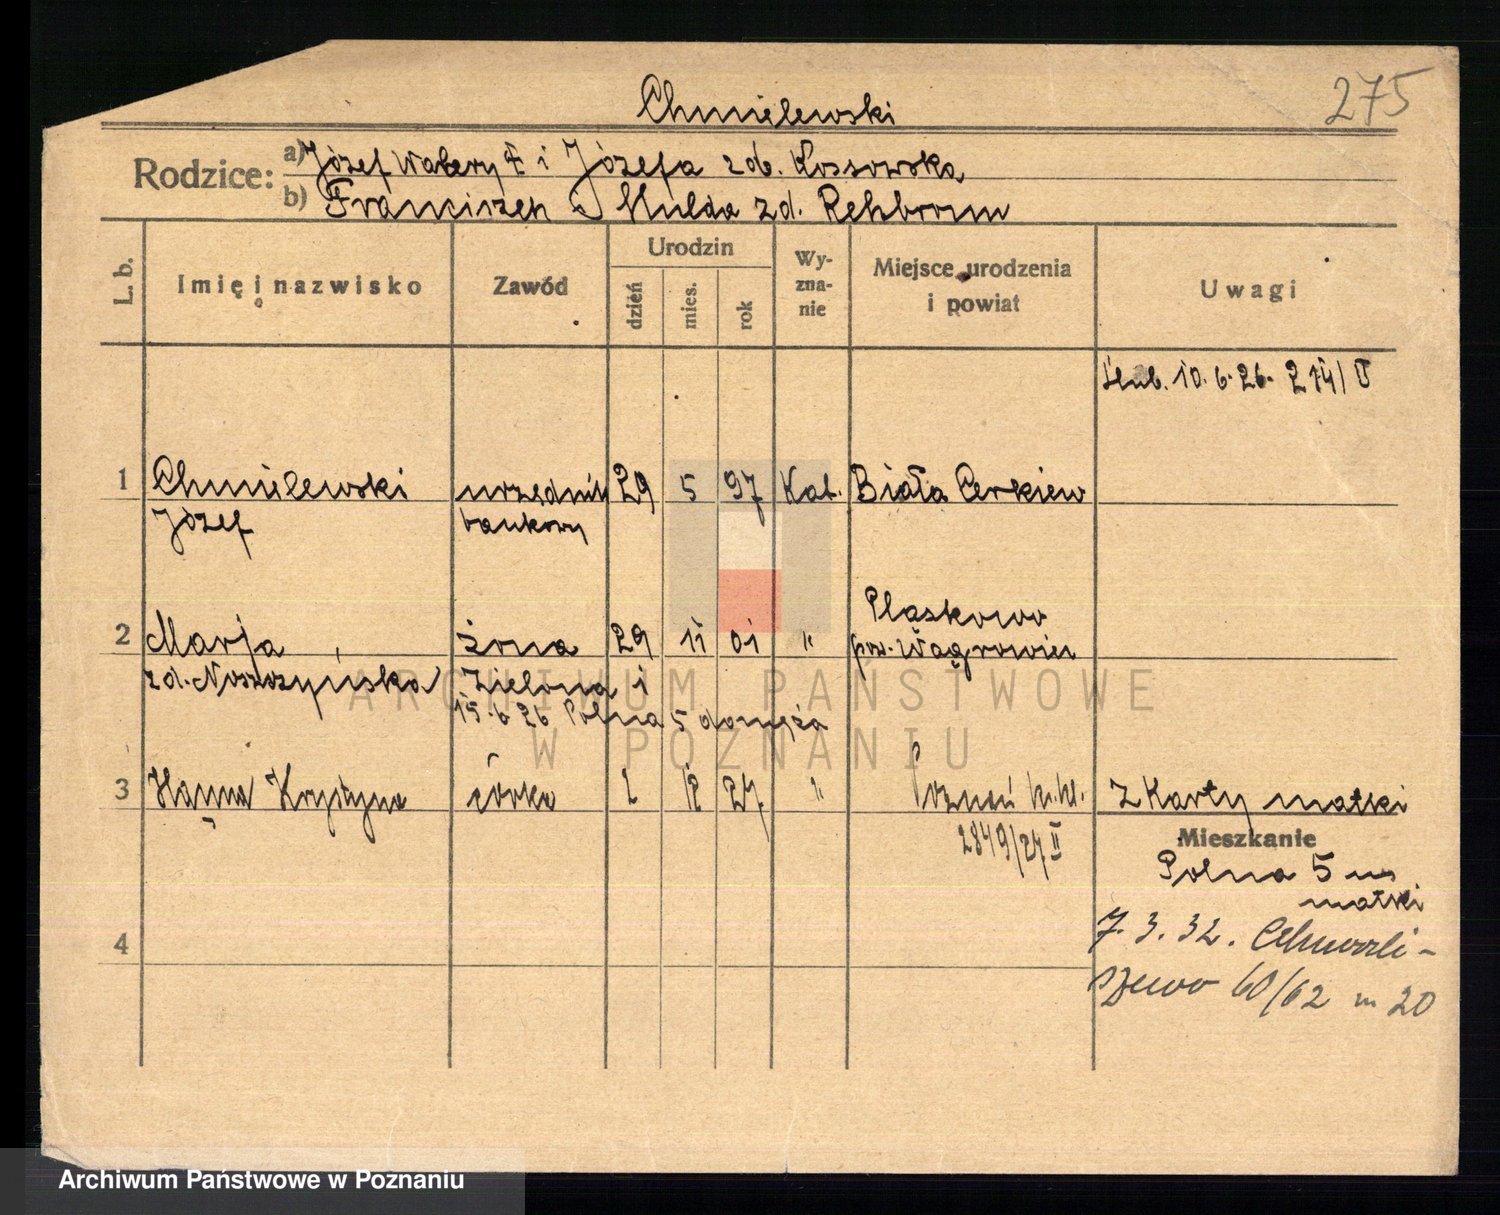 275
Chmielewski
Rodzice:
a) Józef Walery i Józefa zd. Kossowska
b) Franciszek i Hulda zd. Rehbronn
L. b.
Imię i nazwisko
Zawód
Urodzin
dzień
mies.
rok
Wy-
zna-
nie
Miejsce urodzenia
i powiat
Uwagi
ślub. 10. 6. 26. 214/II
1 Chmielewski urzędnik 29 5 97 Kat. Biała Cerkiew
Józef bankowy
Pląskowo
2 Marja żona 29 11 01 " pow. Wągrowiec
zd. Noszczyńska Zielona 1
15.6 26 Polna 5 do męża
3 Hanna Krystyna córka 1 12 27 " Poznań Z Karty matki
2849/27 II
Mieszkanie
Polna 5 m
matki
4
7. 3. 32.
60/62 m 20
ARCHIWUM PAŃSTWOWE
W POZNANIU
Archiwum Państwowe w Poznaniu